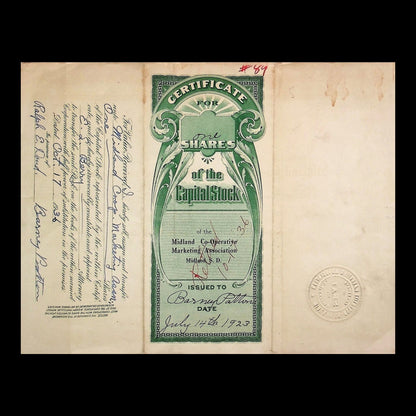 #89
CERTIFICATE
FOR
one
SHARES
of the
Capital Stock
of the
Midland Co-Operative
Marketing Association
Midland, S. D.
10-17-36
ISSUED TO
Barney Patton
DATE
July 14th 1923
For Value Received
hereby sell, assign and transfer
unto Midland Coop Marketing Assn.
One
Shares
of the Capital Stock represented by the within Certificate
and do hereby irrevocably constitute and appoint
to transfer the said Stock on the books of the within named
Corporation with full power of substitution in the premises.
Dated Oct. 17 1936
In presence of
Ralph E.
Barney Patton